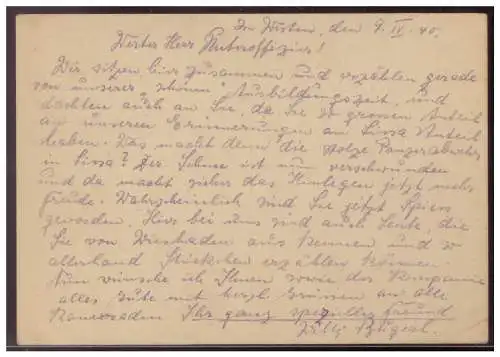 Im Westen, den 9. IV. 40.
Werter Herr Unteroffizier!
Wir sitzen hier zusammen und erzählen gerade
von unserer "schönen" Ausbildungszeit, und
dachten auch an Sie, da Sie so grossen Anteil
an unseren Erinnerungen an Lissa Anteil
haben. Was macht denn die stolze Panzerabwehr
in Lissa? Der Schnee ist nun verschwunden
und da macht sicher das Hinlegen jetzt mehr
Freude. Wahrscheinlich sind Sie jetzt Spiess
geworden. Hier bei uns sind auch Leute, die
Sie von Wiesbaden aus kennen und so
allerhand Stückchen erzählen können.
Nun wünsche ich Ihnen sowie der Kompanie
alles Gute mit herzl. Grüssen an alle
Kameraden Ihr ganz spezieller Freund
Willy